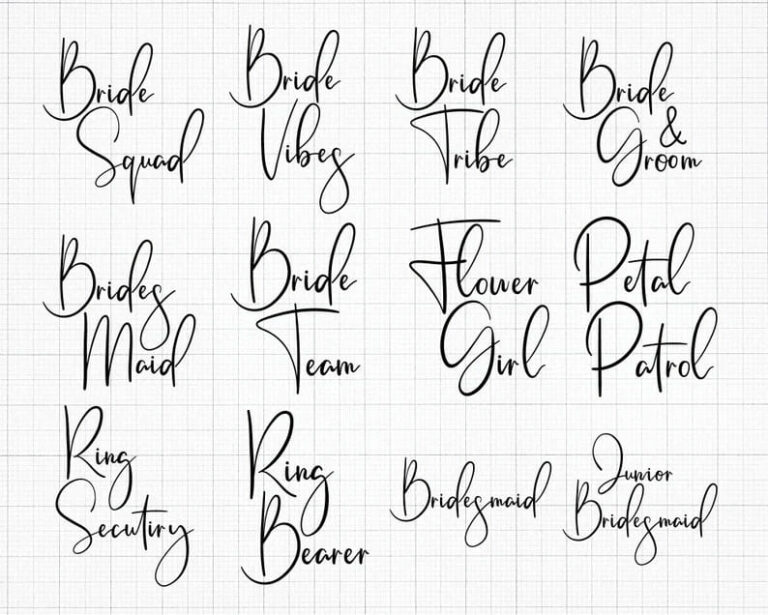 Bride
Squad
Bride
Vibes
Bride
Tribe
Bride
&
Groom
Brides
Maid
Bride
Team
Flower
Girl
Petal
Patrol
Ring
Secutiry
Ring
Bearer
Bridesmaid
Junior
Bridesmaid